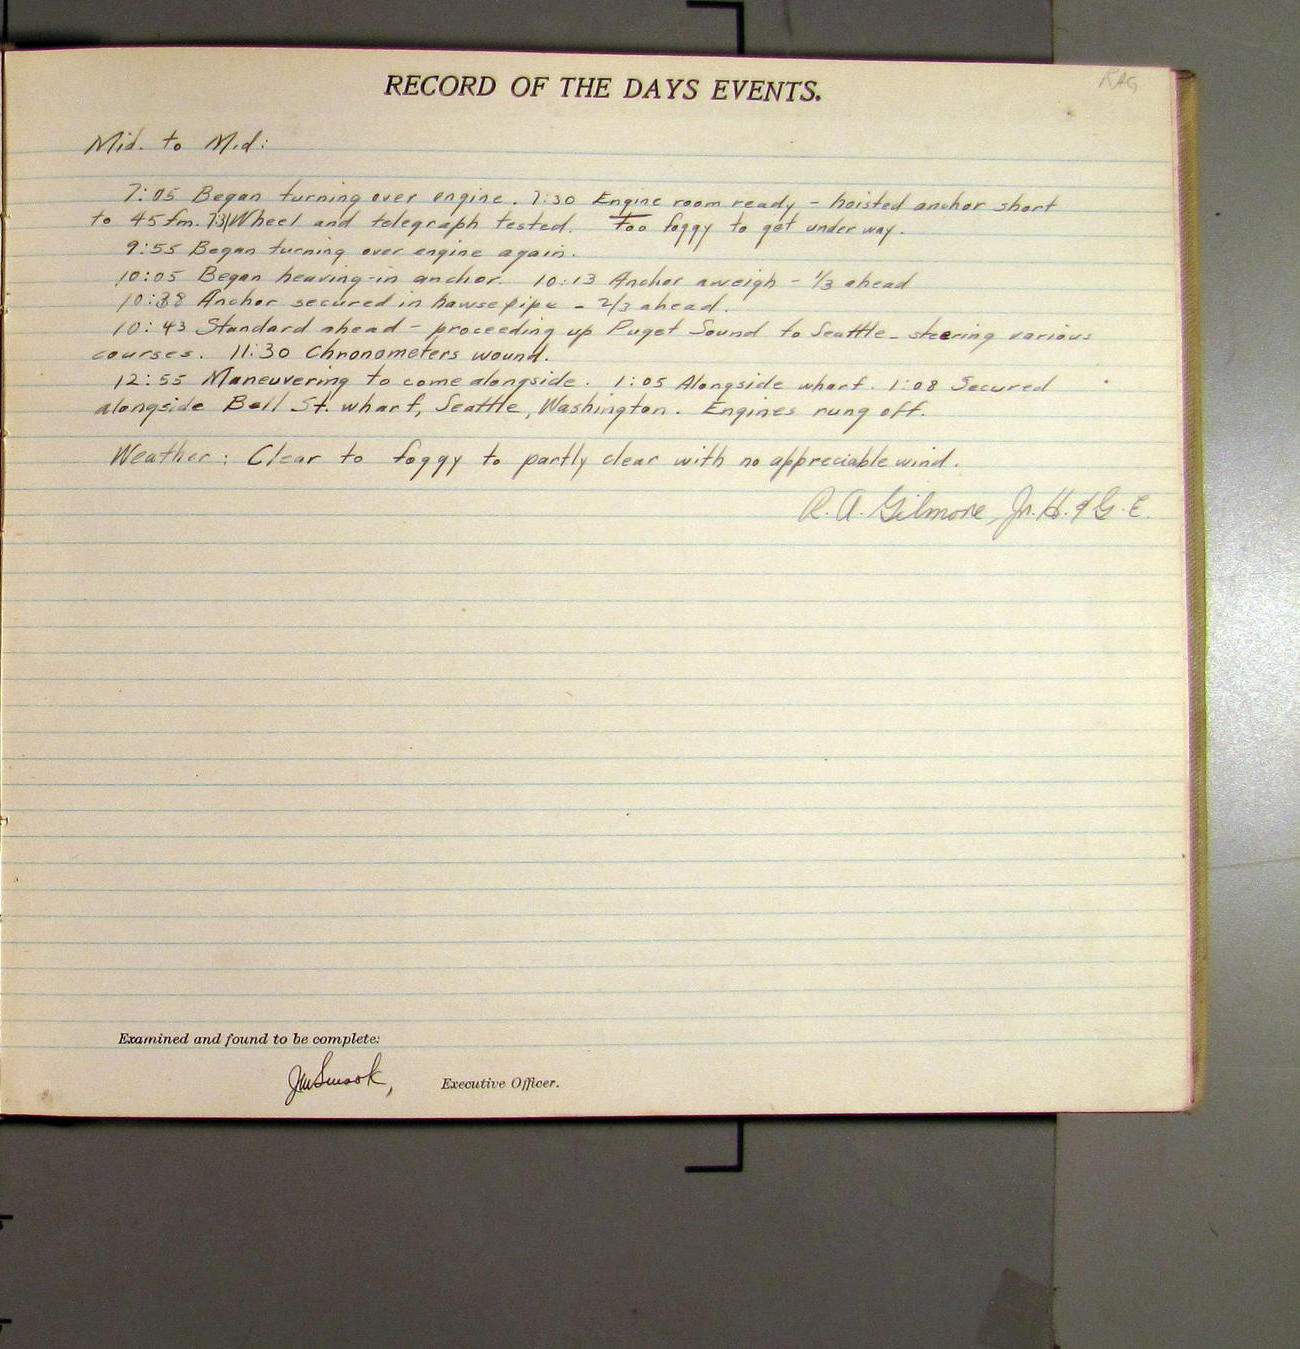 RAG
RECORD OF THE DAYS EVENTS.
Mid. to Mid:
7:05 Began turning over engine. 7:30 Engine room ready - hoisted anchor short
to 45 fm. Wheel and telegraph tested. Too foggy to get under way.
9:55 Began turning over engine again.
10:05 Began heaving-in anchor. 10:13 Anchor aweigh - 1/3 ahead
10:38 Anchor secured in hawse pipe - 2/3 ahead.
10:43 Standard ahead - proceeding up Puget Sound to Seattle - steering various
courses. 11:30 Chronometers wound.
12:55 Maneuvering to come alongside. 1:05 Alongside wharf. 1:08 Secured
alongside Bell St. wharf, Seattle, Washington. Engines rung off.
Weather: Clear to foggy to partly clear with no appreciable wind.
R. A. Gilmore, Jr. H. & G. E.
Examined and found to be complete:
JM Smook, Executive Officer.